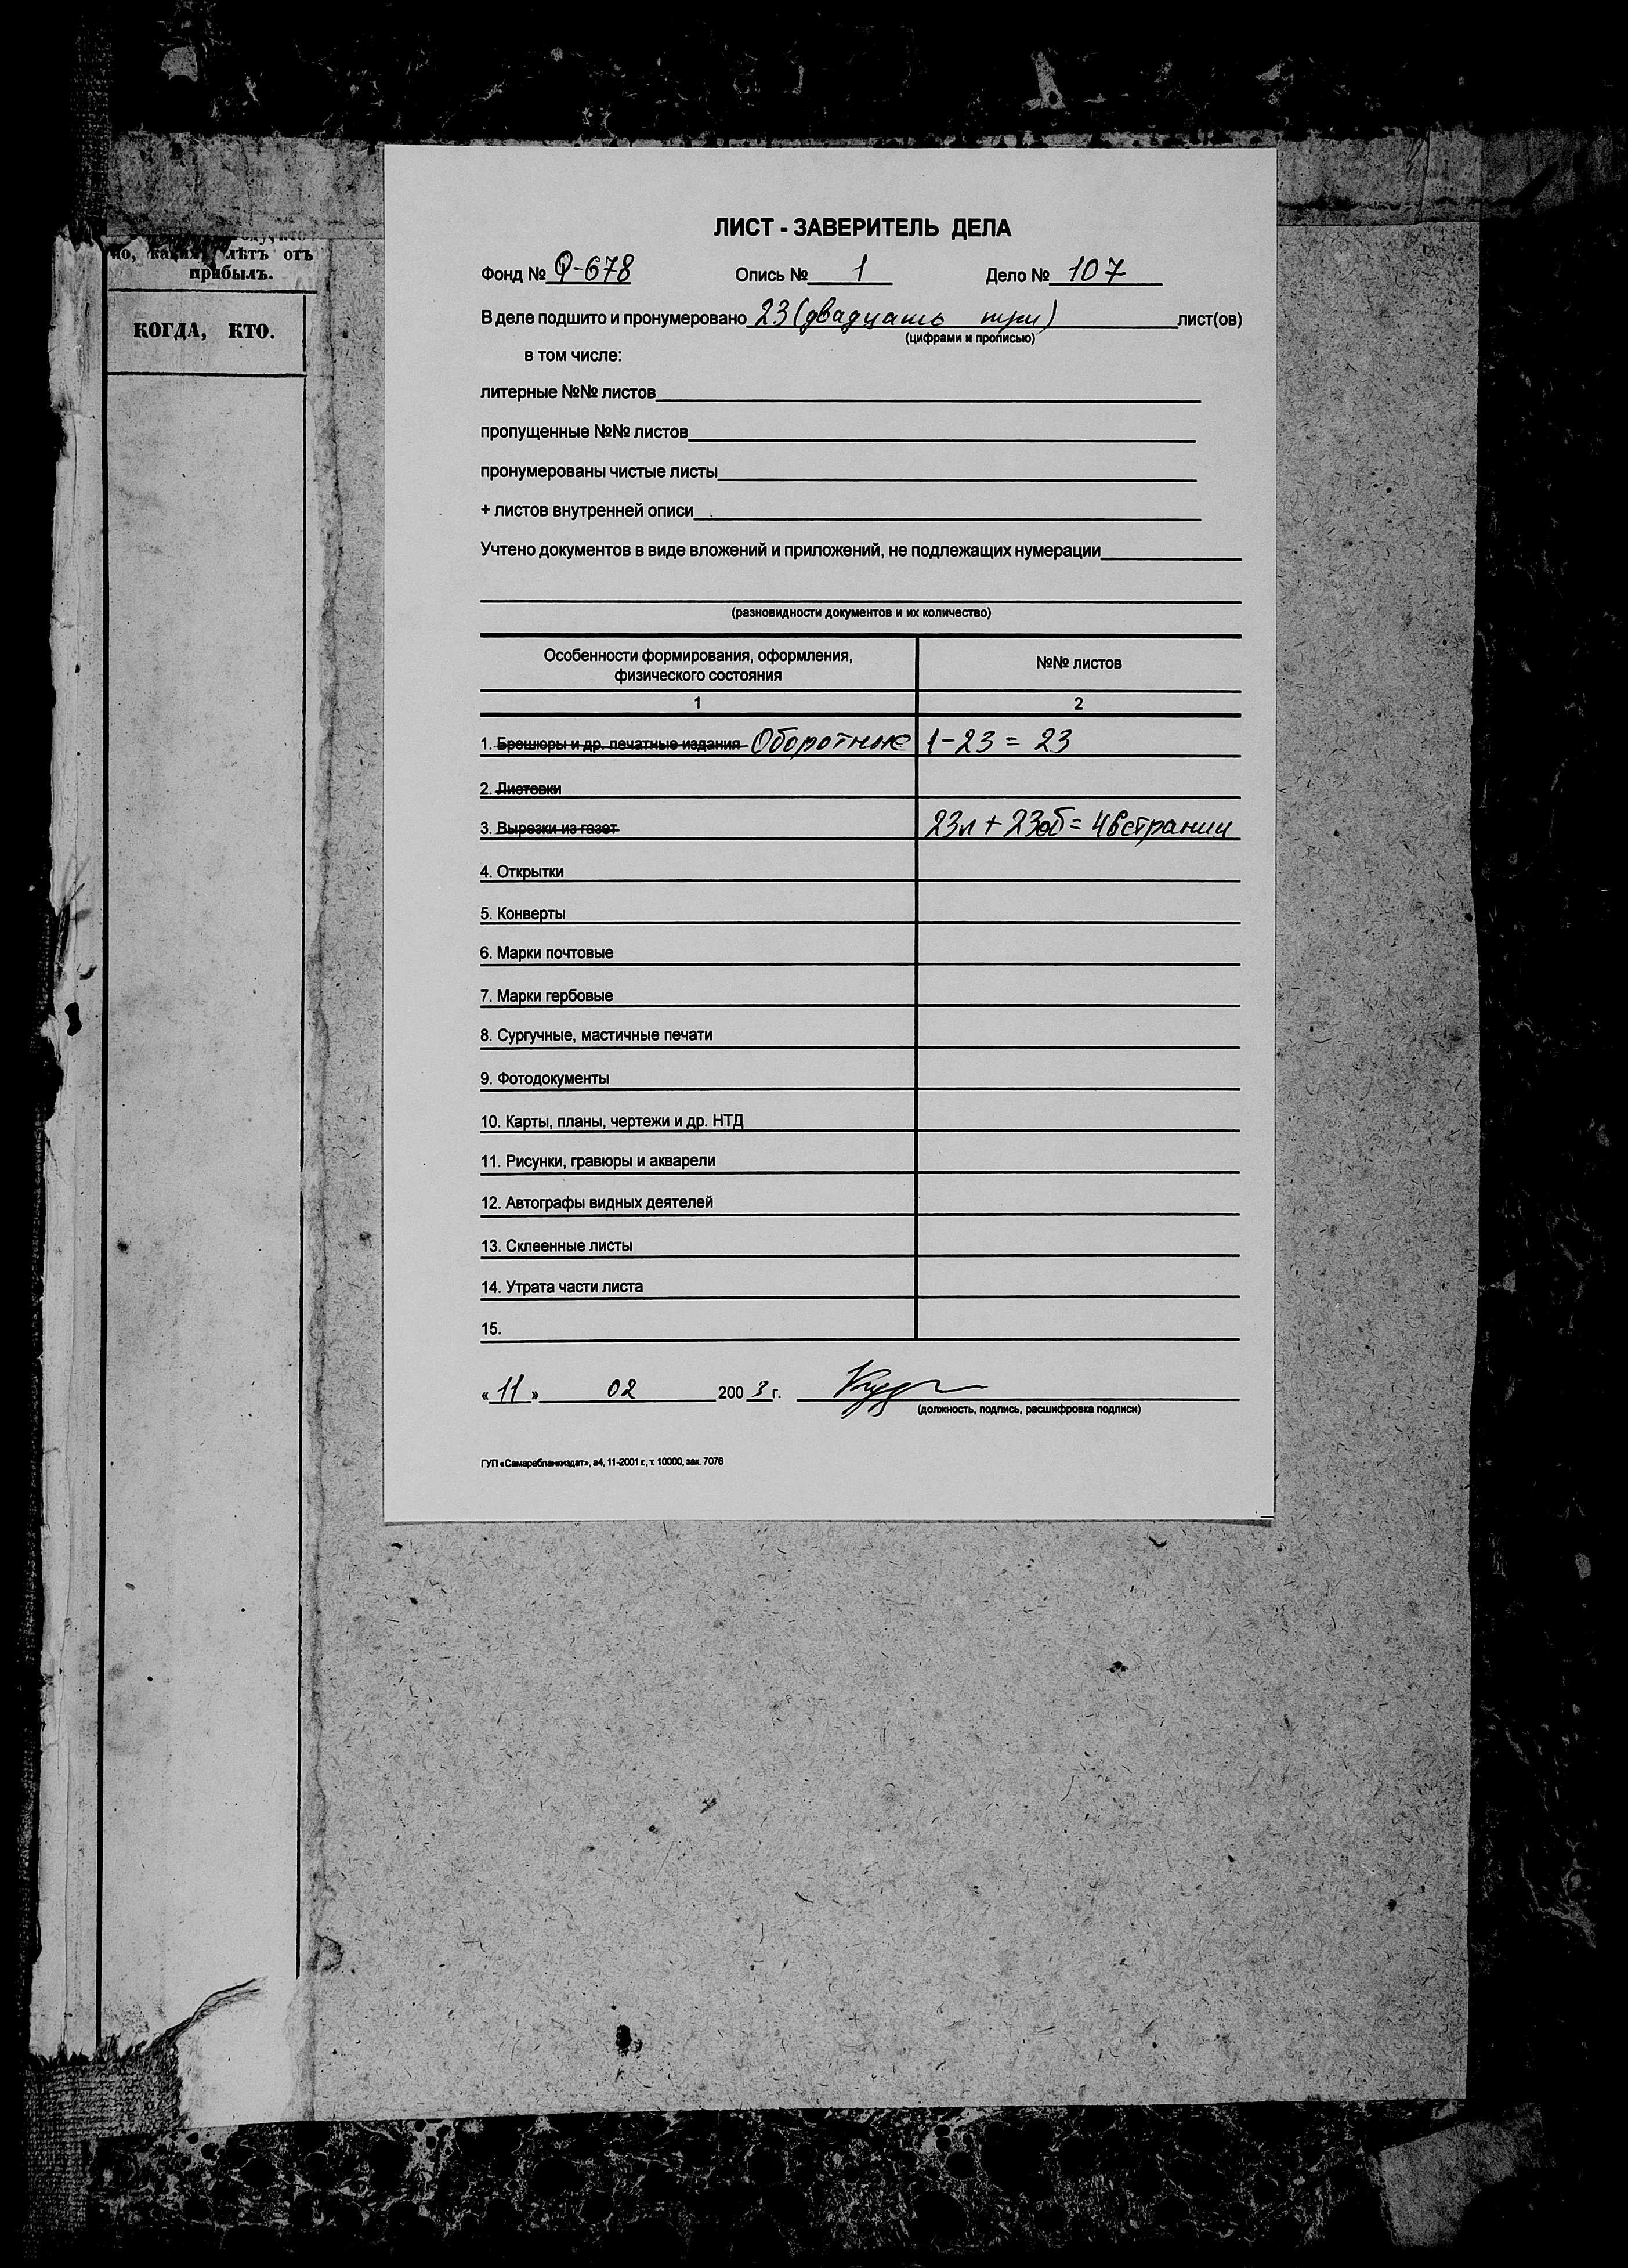 но, какихъ лѣтъ отъ
прибылъ.
КОГДА, КТО.
ЛИСТ - ЗАВЕРИТЕЛЬ ДЕЛА
Фонд № Ф-678 Опись № 1 Дело № 107
В деле подшито и пронумеровано 23 (двадцать три) лист(ов)
(цифрами и прописью)
в том числе:
литерные №№ листов
пропущенные №№ листов
пронумерованы чистые листы
+ листов внутренней описи
Учтено документов в виде вложений и приложений, не подлежащих нумерации
(разновидности документов и их количество)
Особенности формирования, оформления, физического состояния №№ листов
1 2
1. Брошюры и др. печатные издания Оборотные 1-23 = 23
2. Листовки
3. Вырезки из газет 23л + 23об = 46 страниц
4. Открытки
5. Конверты
6. Марки почтовые
7. Марки гербовые
8. Сургучные, мастичные печати
9. Фотодокументы
10. Карты, планы, чертежи и др. НТД
11. Рисунки, гравюры и акварели
12. Автографы видных деятелей
13. Склеенные листы
14. Утрата части листа
15.
« 11 » 02 200 3 г.
(должность, подпись, расшифровка подписи)
ГУП «Самарабланкиздат», а4, 11-2001 г., т. 10000, зак. 7076